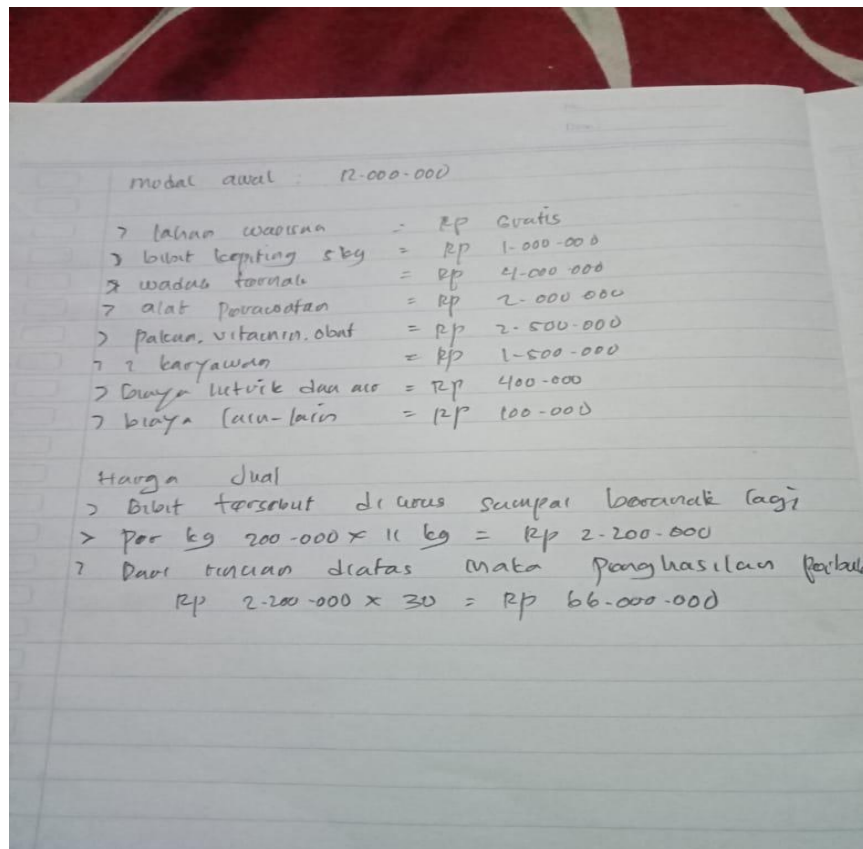 modal awal : 12.000.000
> lahan warisan = Rp Gratis
> bibit kepiting 5kg = Rp 1.000.000
> wadah ternak = Rp 4.000.000
> alat perawatan = Rp 2.000.000
> Pakan, vitamin, obat = Rp 2.500.000
> 2 karyawan = Rp 1.500.000
> biaya listrik dan air = Rp 400.000
> biaya lain-lain = Rp 100.000
Harga Jual
> Bibit tersebut di urus sampai beranak lagi
> Per kg 200.000 x 11 kg = Rp 2.200.000
> Dari rincian diatas maka penghasilan
Rp 2.200.000 x 30 = Rp 66.000.000